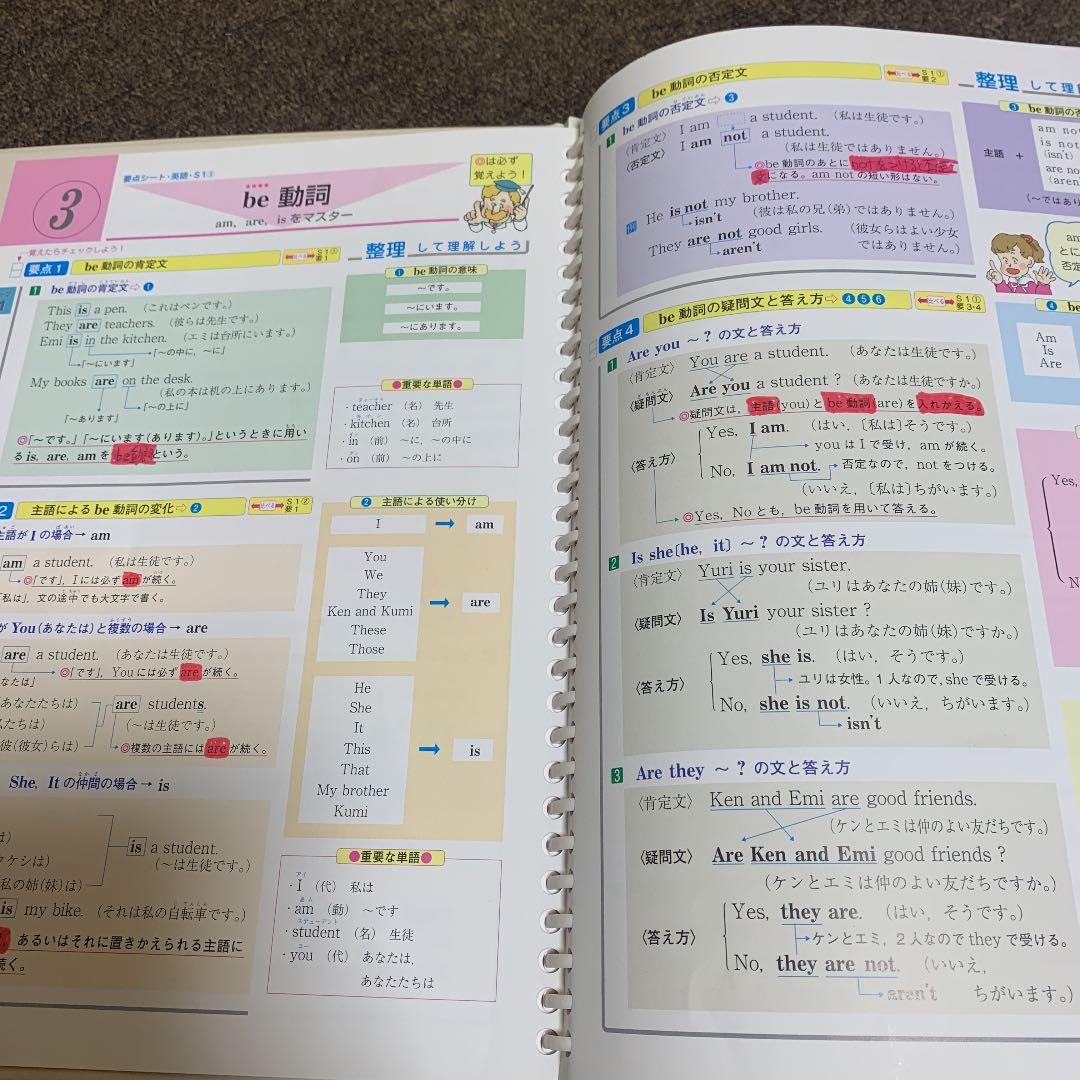 要点シート・英語・S1③
3
be 動詞
am, are, is をマスター
◎は必ず
覚えよう！
覚えたらチェックしよう！
要点1 be 動詞の肯定文
比べる S1① 要1
1 be動詞の肯定文⇨❶
This is a pen. （これはペンです。）
They are teachers. （彼らは先生です。）
Emi is in the kitchen. （エミは台所にいます。）
「〜の中に，〜に」
「〜にいます」
My books are on the desk.
（私の本は机の上にあります。）
「〜の上に」
「〜あります」
◎「〜です。」「〜にいます（あります）。」というときに用い
るis, are, amを という。
整理 して理解しよう
❶ be 動詞の意味
〜です。
〜にいます。
〜にあります。
●重要な単語●
・teacher （名） 先生
・kitchen （名） 台所
・in （前） 〜に，〜の中に
・on （前） 〜の上に
2 主語による be 動詞の変化⇨❷
比べる S1② 要1
主語が I の場合→ am
am a student. （私は生徒です。）
◎「です」，Iには必ずamが続く。
「私は」，文の途中でも大文字で書く。
が You（あなたは）と複数の場合→ are
are a student. （あなたは生徒です。）
◎「です」，Youには必ずareが続く。
なたは」
あなたたちは）
私たちは）
彼（彼女）らは）
are students.
（〜は生徒です。）
◎複数の主語にはareが続く。
She, It の仲間の場合→ is
は）
タケシは）
私の姉（妹）は）
is a student.
（〜は生徒です。）
is my bike. （それは私の自転車です。）
あるいはそれに置きかえられる主語に
続く。
❷ 主語による使い分け
I → am
You
We
They
Ken and Kumi
These
Those
→ are
He
She
It
This
That
My brother
Kumi
→ is
●重要な単語●
アイ
・I （代） 私は
あん
・am （動） 〜です
ステューデント
・student （名） 生徒
ユー
・you （代） あなたは，
あなたたちは
要点3 be 動詞の否定文
比べる S1① 要2
1 be動詞の否定文⇨❸
〈肯定文〉 I am a student. （私は生徒です。）
〈否定文〉 I am not a student.
（私は生徒ではありません。）
◎be 動詞のあとにnotをつけると否定
文になる。am not の短い形はない。
He is not my brother.
isn't （彼は私の兄（弟）ではありません。）
They are not good girls. （彼女らはよい少女
aren't ではありません。）
整理 して理解
❸ be 動詞の否
主語 ＋
am no
is not
(isn't)
are no
(aren
（〜ではあり
am
とに
否定
要点4 be 動詞の疑問文と答え方⇨❹❺❻
比べる S1① 要3・4
1 Are you 〜 ? の文と答え方
〈肯定文〉 You are a student. （あなたは生徒です。）
〈疑問文〉 Are you a student ? （あなたは生徒ですか。）
◎疑問文は，主語(you)とbe動詞(are)を入れかえる。
〈答え方〉
Yes, I am. （はい，〔私は〕そうです。）
youはIで受け，amが続く。
No, I am not. 否定なので，notをつける。
（いいえ，〔私は〕ちがいます。）
◎Yes, Noとも，be動詞を用いて答える。
2 Is she〔he, it〕 〜 ? の文と答え方
〈肯定文〉 Yuri is your sister.
（ユリはあなたの姉（妹）です。）
〈疑問文〉 Is Yuri your sister ?
（ユリはあなたの姉（妹）ですか。）
〈答え方〉
Yes, she is. （はい，そうです。）
ユリは女性。1人なので，sheで受ける。
No, she is not. （いいえ，ちがいます。）
isn't
3 Are they 〜 ? の文と答え方
〈肯定文〉 Ken and Emi are good friends.
（ケンとエミは仲のよい友だちです。）
〈疑問文〉 Are Ken and Emi good friends ?
（ケンとエミは仲のよい友だちですか。）
〈答え方〉
Yes, they are. （はい，そうです。）
ケンとエミ，2人なのでtheyで受ける。
No, they are not. （いいえ，
aren't ちがいます。）
❹ be
Am
Is
Are
Yes,
No,